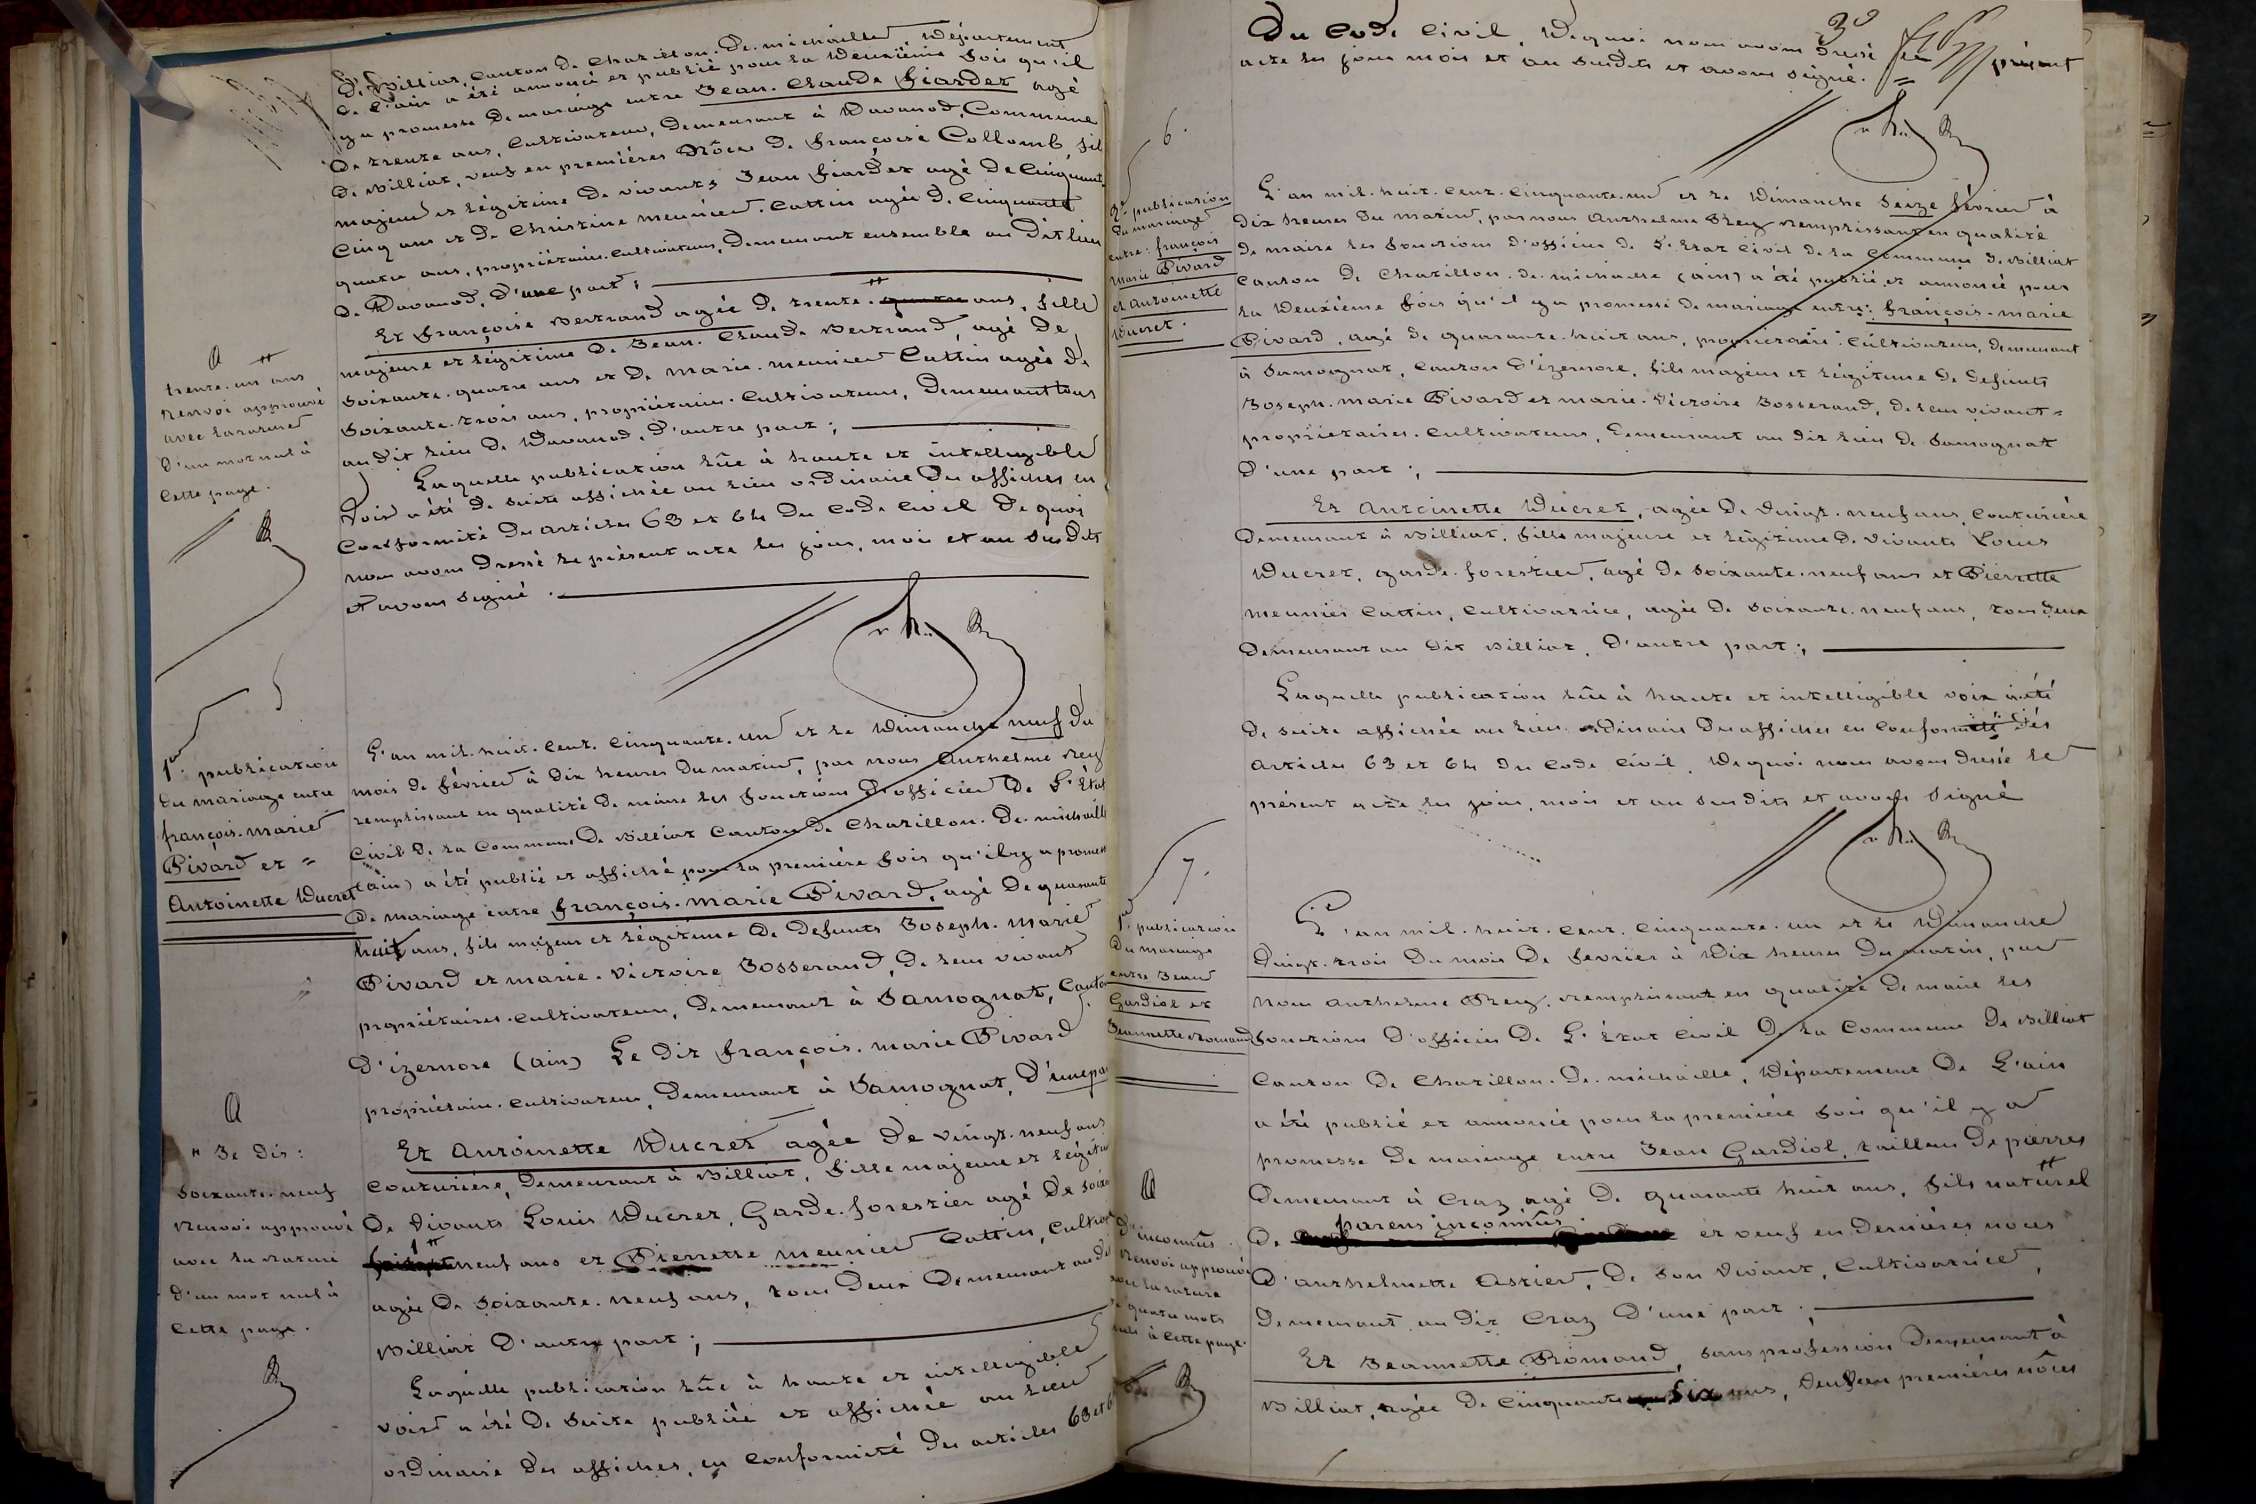 De Billiat, Canton de Chatillon. De. michaille, Département
De L'ain a été annoncé et publié pour la Deuxième fois qu'il
y a promesse De mariage entre Jean. Claude Fiardet agé
De trente ans, Cultivateur, Demeurant à Davanod, Commune
De Billiat, veuf en premières Nôces De Françoise Collomb, fils
majeur et légitime De vivants Jean Fiardet agé De Cinquante
Cinq ans et De Christine meunier. Cattin agée De Cinquante
quatre ans, propriétaires. Cultivateurs, Demeurant ensemble au Dit lieu
De Davanod, D'une part ;
Et Françoise Bertrand agée De trente. quatre ans, fille
majeure et légitime De Jean. Claude Bertrand, agé De
Soixante. quatre ans et De Marie. meunier Cattin agée De
Soixante. trois ans, propriétaires. Cultivateurs, Demeurant tous
au dit lieu De Davanod, D'autre part ;
Laquelle publication lûe à haute et intelligible
Voix a été De Suite affichée au lieu ordinaire Des affiches en
Conformité Des articles 63 et 64 Du Code Civil De quoi
nous avons Dressé le présent acte les jour, mois et an Susdits
et avons Signé .
trente. un ans
Renvoi approuvé
avec la rature
D'un mot nul à
Cette page.
5
1re publication
Du mariage entre
François. marie
Pivard et =
Antoinette Ducret
L'an mil. huit. Cent. Cinquante. un et le Dimanche neuf Du
mois De février à Dix heures Du matin, par nous Anthelme Rey
remplissant en qualité De maire les fonctions D'officier De L'État
Civil De la Commune De Billiat Canton De Chatillon. De. michaille
(ain) a été publié et affiché pour la première fois qu'il y a promesse
De mariage entre François. marie Pivard, agé De quarante
huit ans, fils majeur et légitime De Defunts Joseph. marie
Pivard et marie. Victoire Josserand, De leur vivant
propriétaires. Cultivateurs, Demeurant à Samognat, Canton
D'izernore (ain) Le Dit François. marie Pivard
propriétaire. Cultivateur, Demeurant à Samognat, D'une part
Et Antoinette Ducret agée De vingt. neuf ans
Couturière, Demeurant à Billiat, fille majeure et légitime
De Vivants Louis Ducret, Garde. forestier agé De soixante
neuf ans et Pierrette meunier Cattin, Cultivatrice
agée De Soixante. neuf ans, tous Deux Demeurant au dit
Billiat D'autre part ;
Laquelle publication lûe à haute et intelligible
voix a été De Suite publiée et affichée au lieu
ordinaire Des affiches, en Conformité Des articles 63 et 6
" Je Dis :
Soixante. neuf
Renvoi approuvé
avec la rature
D'un mot nul à
Cette page.
Du Code Civil, De quoi nous avons Dressé le présent
acte les jour mois et an Susdits et avons Signé.
6.
2e publication
Du mariage
entre François
Marie Pivard
et Antoinette
Ducret.
L'an mil. huit. Cent. Cinquante. un et le Dimanche Seize février à
Dix heures Du matin, par nous Anthelme Rey remplissant en qualité
De maire les fonctions D'officier De L'État Civil De la Commune De Billiat
Canton De Chatillon. De. michaille (ain) a été publié et annoncé pour
la Deuxième fois qu'il y a promesse De mariage entre : François. marie
Pivard, agé De quarante. huit ans, propriétaire. Cultivateur, Demeurant
à Samognat, Canton D'izernore, fils majeur et légitime De Defunts
Joseph. marie Pivard et marie. Victoire Josserand, De leur vivant =
propriétaires. Cultivateurs, Demeurant au dit lieu De Samognat
D'une part ;
Et Antoinette Ducret, agée De Vingt. neuf ans, Couturière
Demeurant à Billiat, fille majeure et légitime De Vivants Louis
Ducret, garde. forestier, agé De Soixante. neuf ans et Pierrette
meunier Cattin, Cultivatrice, agée De Soixante. neuf ans, tous Deux
Demeurant au Dit Billiat, D'autre part ;
Laquelle publication lûe à haute et intelligible voix a été
De Suite affichée au lieu ordinaire Des affiches en Conformité Des
Articles 63 et 64 Du Code Civil, De quoi nous avons Dressé le
présent acte les jour, mois et an Susdits et avons Signé
7.
1re publication
Du mariage
entre Jean
Gardiol et
Jeannette Romand
L'an mil. huit. Cent. Cinquante. un et le Dimanche
Vingt. trois Du mois De février à Dix heures Du matin, par
nous Anthelme Rey, remplissant en qualité De maire les
fonctions D'officier De L'État Civil De la Commune De Billiat
Canton De Chatillon. De. michaille, Département De L'ain
a été publié et annoncé pour la première fois qu'il y a
promesse De mariage entre Jean Gardiol, tailleur De pierres
Demeurant à Craz agé De quarante huit ans, fils naturel
De parens inconnûs et veuf en Dernières noces
D'anthelmette Astier, De Son Vivant, Cultivatrice,
Demeurant au Dit Craz D'une part ;
Et Jeannette Romand, Sans profession Demeurant à
Billiat, agée De Cinquante Six ans, veuve en premières nôces
D'inconnûs
Renvoi approuvé
avec la rature
De quatre mots
nuls à Cette page.